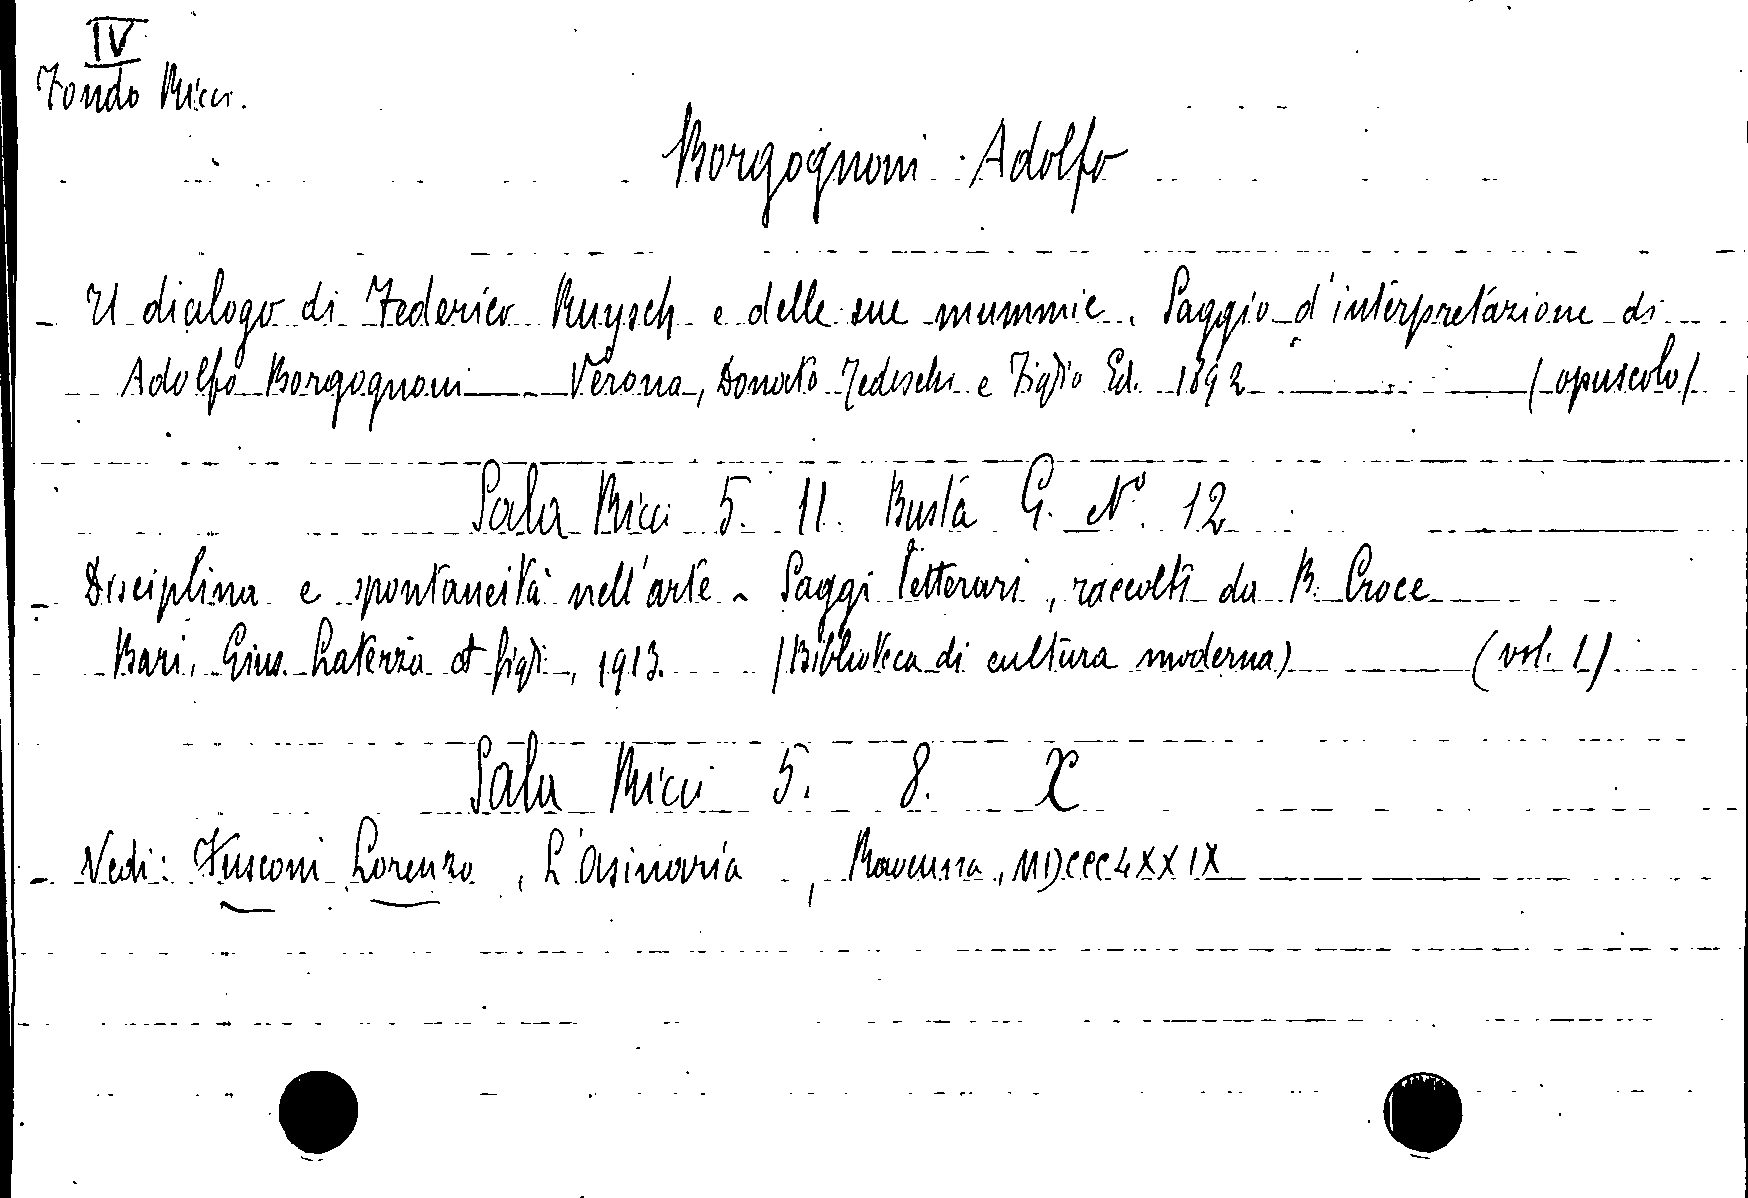 IV
Fondo Ricci.
Borgognoni Adolfo
- Il dialogo di Federico Ruysch e delle sue mummie. Saggio d'interpretazione di
Adolfo Borgognoni — Verona, Donato Tedeschi e Figlio Ed. 1892 — (opuscolo)
Sala Ricci 5. 11. Busta G. N° 12
- Disciplina e spontaneità nell'arte - Saggi letterari, raccolti da B. Croce
Bari, Gius. Laterza et figli, 1913. (Biblioteca di cultura moderna) (vol. 1)
Sala Ricci 5. 8. X
- Vedi: Fusconi Lorenzo, L'Asinaria, Ravenna, MDCCCLXXIX